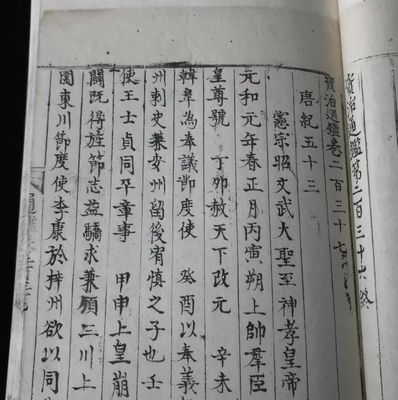 資治通鑑第二百三十六終
資治通鑑卷二百三十七
唐紀五十三
憲宗昭文武大聖至神孝皇帝
元和元年春正月丙寅朔上帥羣臣
皇尊號　丁卯赦天下改元　辛未
韓皐為奉議節度使　癸酉以奉義
州剌史兼安州留後宥慎之子也　壬
使王士貞同平章事　甲申上皇崩
闢既得旌節志益驕求兼領三川上
圍東川節度使李康於梓州欲以同